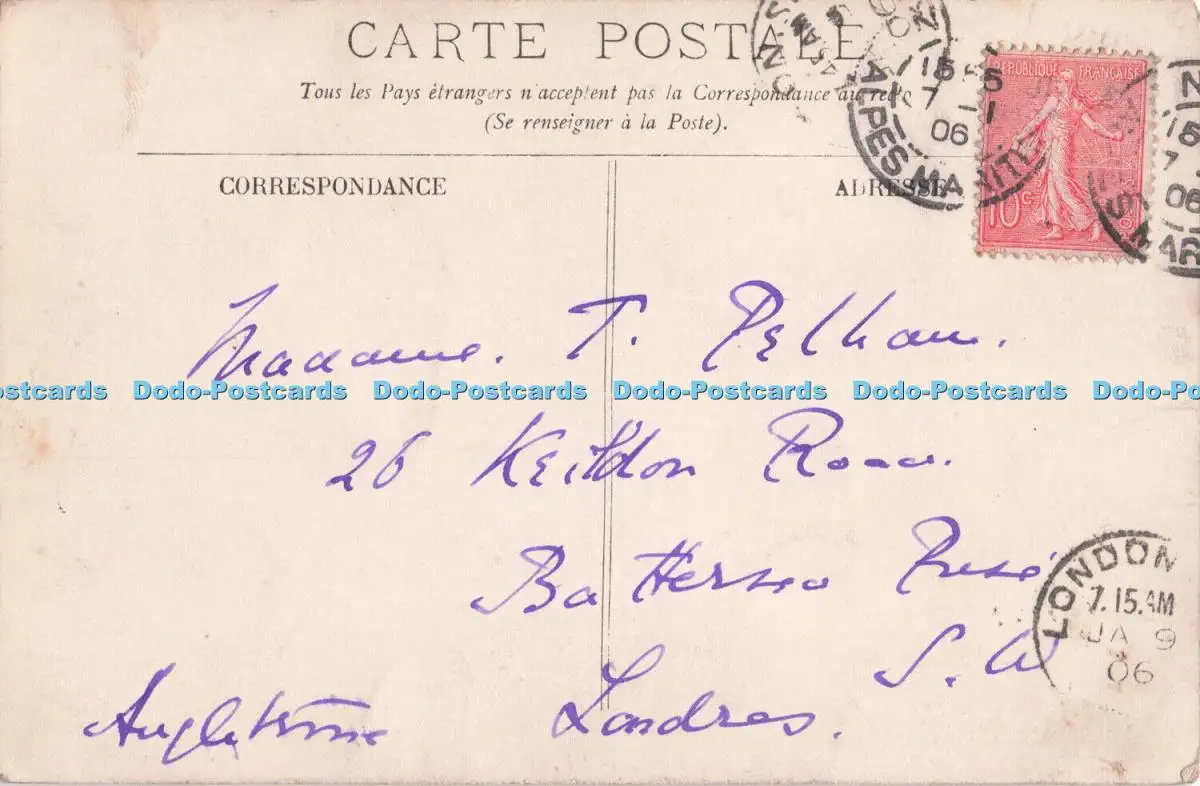 CARTE POSTALE
Tous les Pays étrangers n'acceptent pas la Correspondance au recto
(Se renseigner à la Poste).
CORRESPONDANCE
ADRESSE
RÉPUBLIQUE FRANÇAISE
10 c
15
7 1
06
ALPES MARITIMES
15
7
06
S MAR
Madame. T. Pelham.
ostcards Dodo-Postcards Dodo-Postcards Dodo-Postcards Dodo-Postcards Dodo-Pos
26 Keildon Road.
Battersea Rise
S. W
Angleterre Londres.
LONDON
7.15.AM
JA 9
06